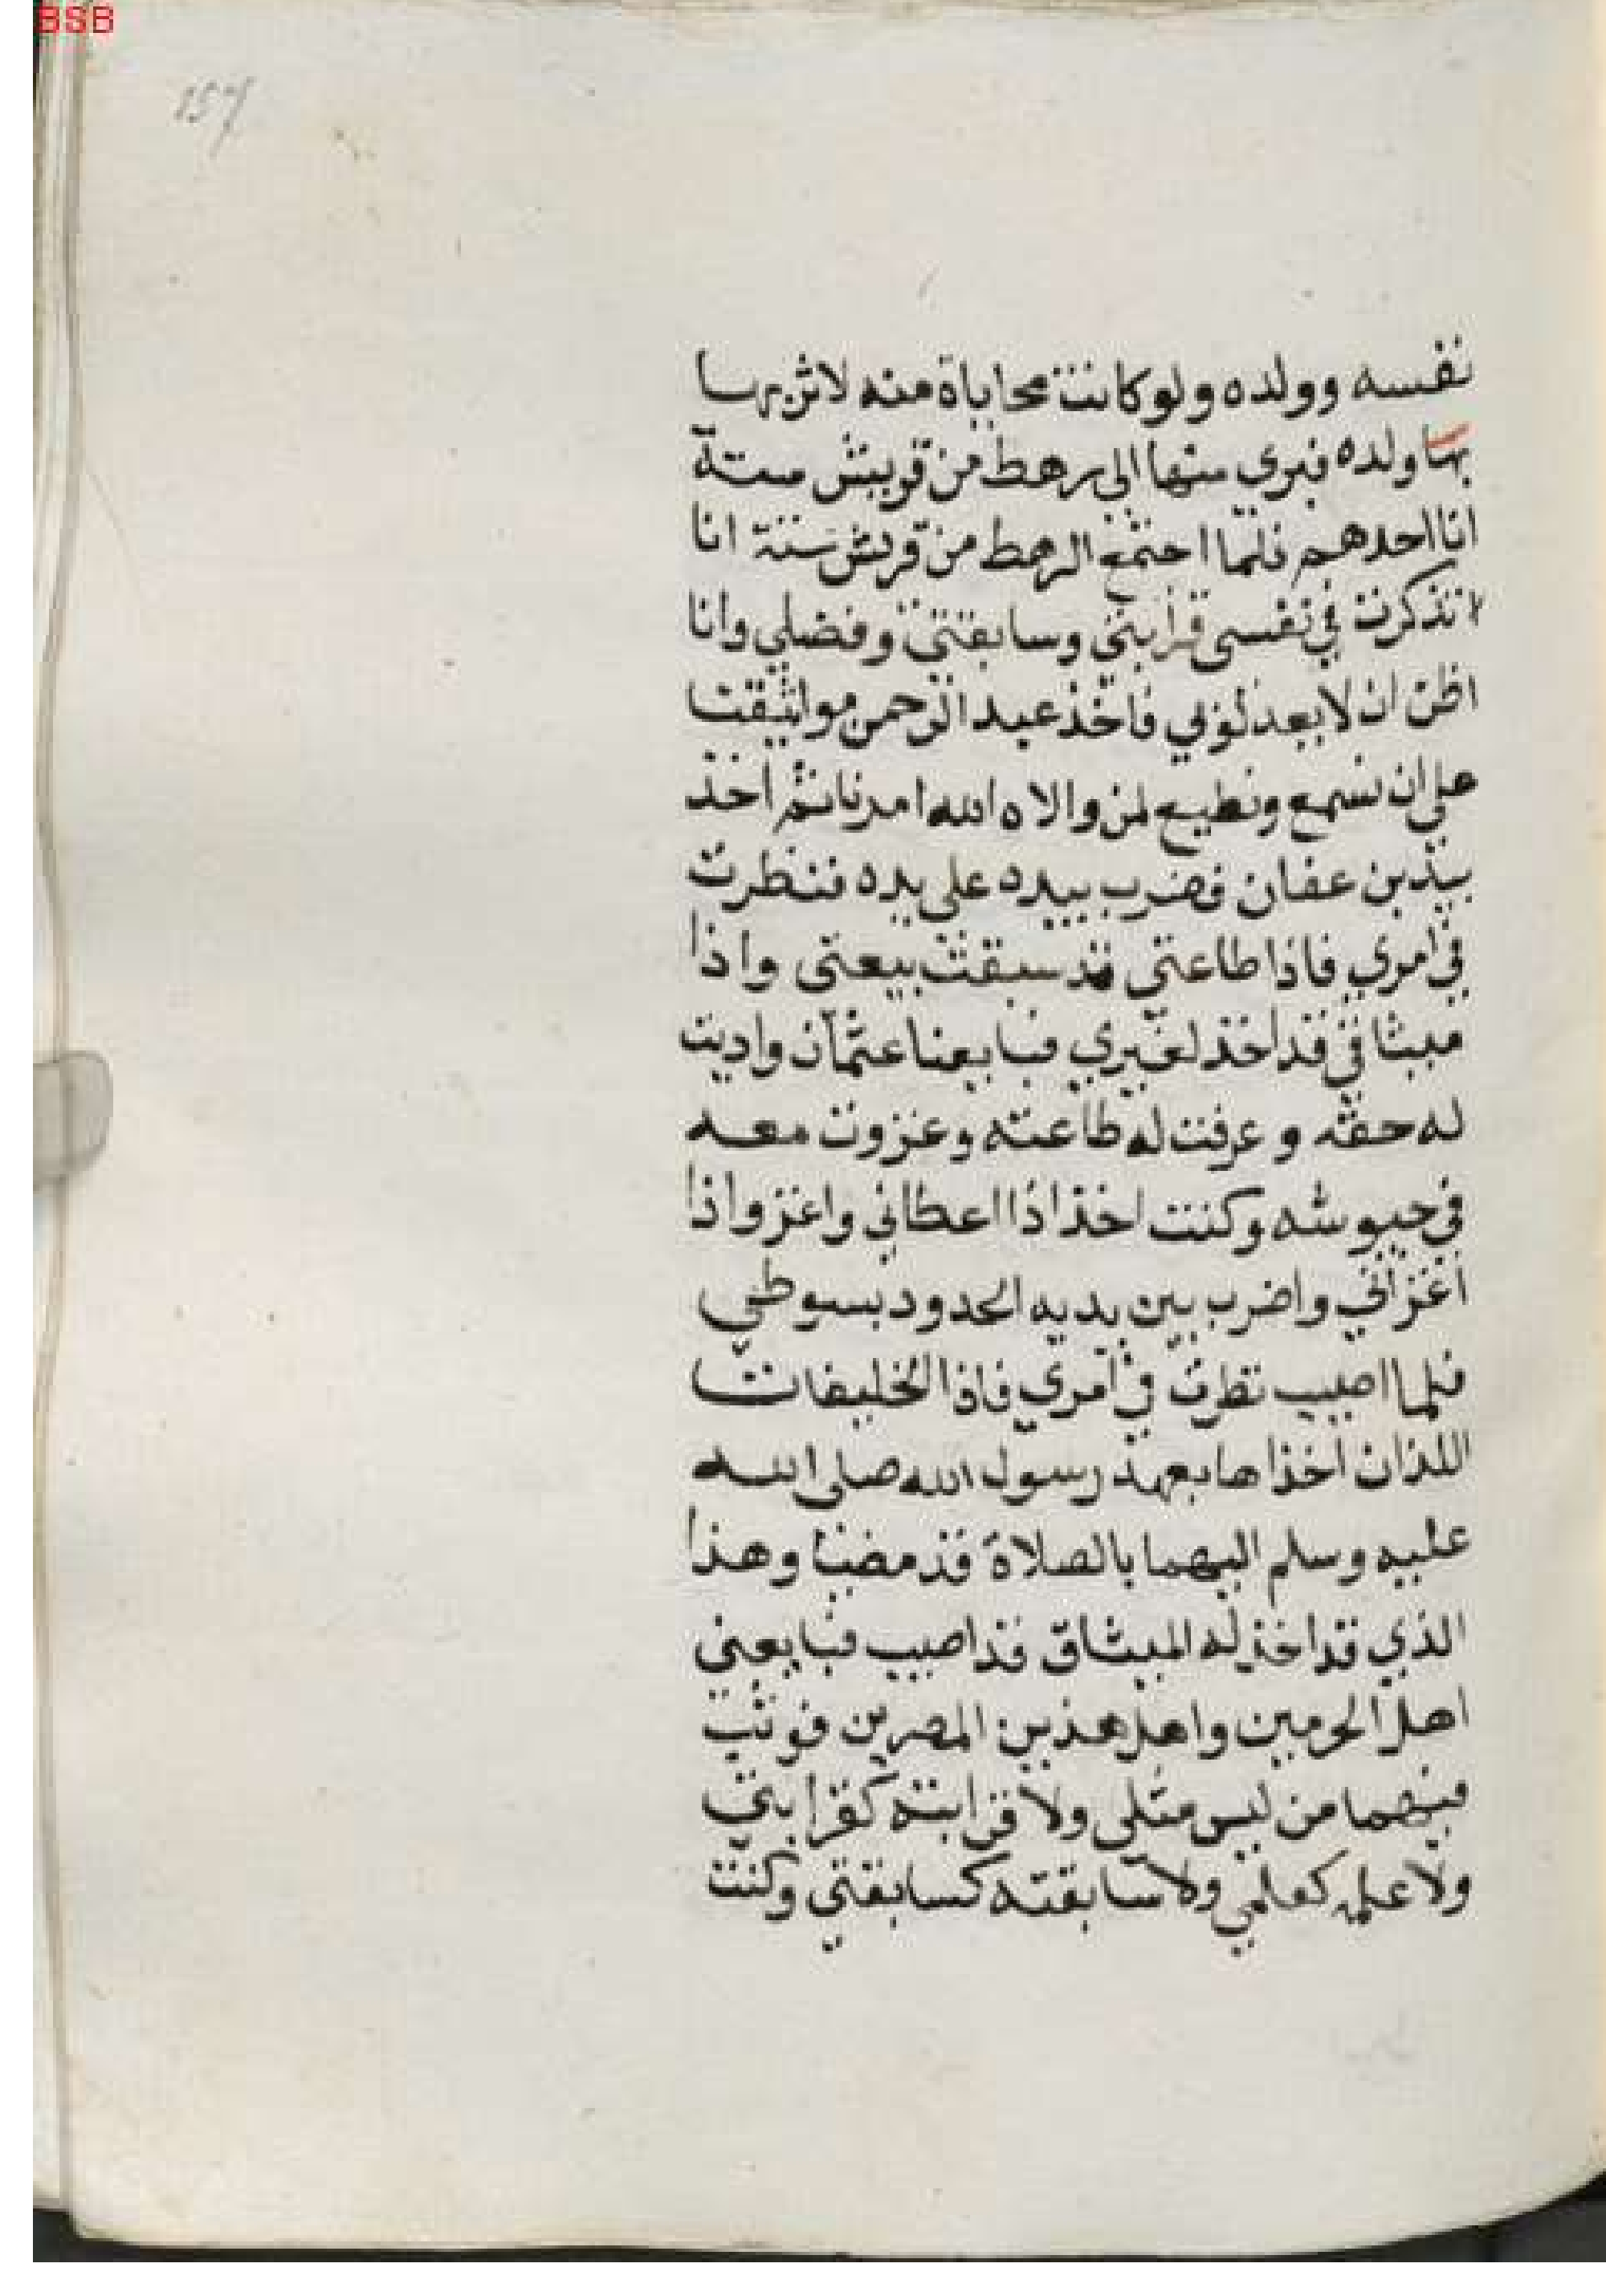 BSB
157
نفسه وولده ولو كانت محاباة منه لاثر بها
بها ولده فبري منها الي رهط من قريش ستة
انا احدهم فلما اجتمع الرهط من قريش ستة انا
تذكرت في نفسي قرابتي وسابقتي وفضلي وانا
اظن ان لا يعدلو بي فاخذ عبد الرحمن مواثيقنا
علي ان نسمع ونطيع لمن والاه الله امرنا ثم اخذ
بيد بن عفان فضرب بيده علي يده فنظرت
في امري فاذا طاعتي قد سبقت بيعتي واذا
ميثاقي قد اخذ لغيري فبايعنا عثمان واديت
له حقه وعرفت له طاعته وغزوت معه
في جيوشه وكنت اخذ اذا اعطاني واغزو اذا
اغزاني واضرب بين يديه الحدود بسوطي
فلما اصيب نظرت في امري فاذا الخليفات
اللذان اخذاها بعهد رسول الله صلي الله
عليه وسلم اليهما بالصلاة قد مضيا وهذا
الذي قد اخذ له الميثاق قد اصيب فبايعني
اهل الحرمين واهل هذين المصرين فوثب
فيهما من ليس مثلي ولا قرابته كقرابتي
ولا علمه كعلمي ولا سابقته كسابقتي وكنت